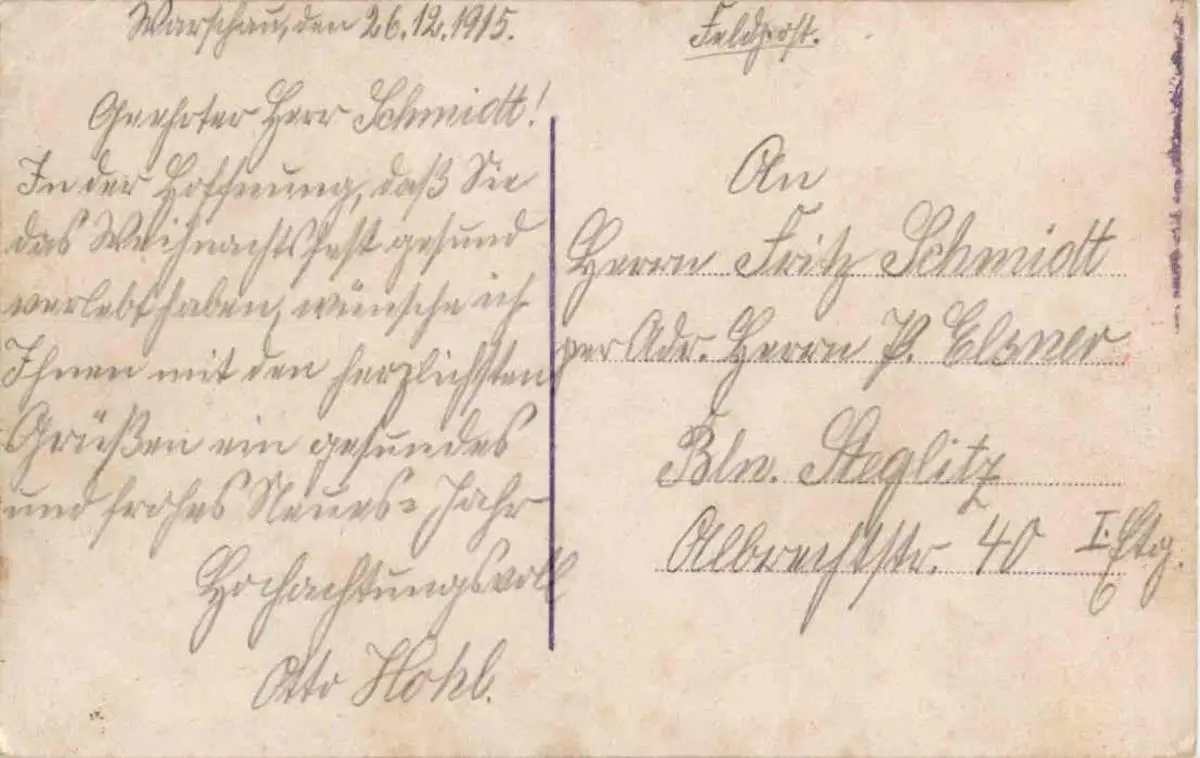 Warschau, den 26.12.1915.
Geehrter Herr Schmidt!
In der Hoffnung, daß Sie
das Weihnachtsfest gesund
verlebt haben, wünsche ich
Ihnen mit den herzlichsten
Grüßen ein gesundes
und frohes Neues-Jahr
Hochachtungsvoll
Otto Hohl.
Feldpost.
An
Herrn Fritz Schmidt
per Adr. Herrn P. Elsner
Bln. Steglitz
Albrechtstr. 40 I. Etg.